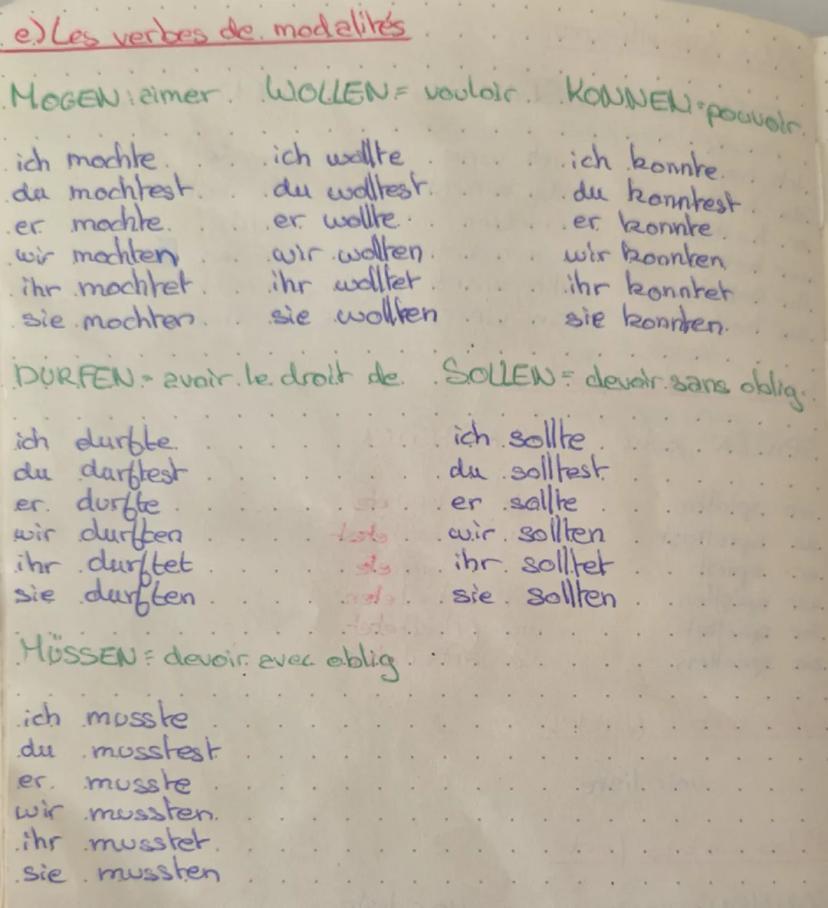 e) Les verbes de modalités
MOGEN : aimer
WOLLEN = vouloir
KONNEN = pouvoir
ich mochte
du mochtest
er mochte
wir mochten
ihr mochtet
sie mochten
ich wollte
du wolltest
er wollte
wir wollten
ihr wolltet
sie wollten
ich konnte
du konntest
er konnte
wir konnten
ihr konntet
sie konnten
DURFEN = avoir le droit de
SOLLEN = devoir sans oblig.
ich durfte
du durftest
er durfte
wir durften
ihr durftet
sie durften
ich sollte
du solltest
er sollte
wir sollten
ihr solltet
sie sollten
MÜSSEN = devoir avec oblig
ich musste
du musstest
er musste
wir mussten
ihr musstet
sie mussten